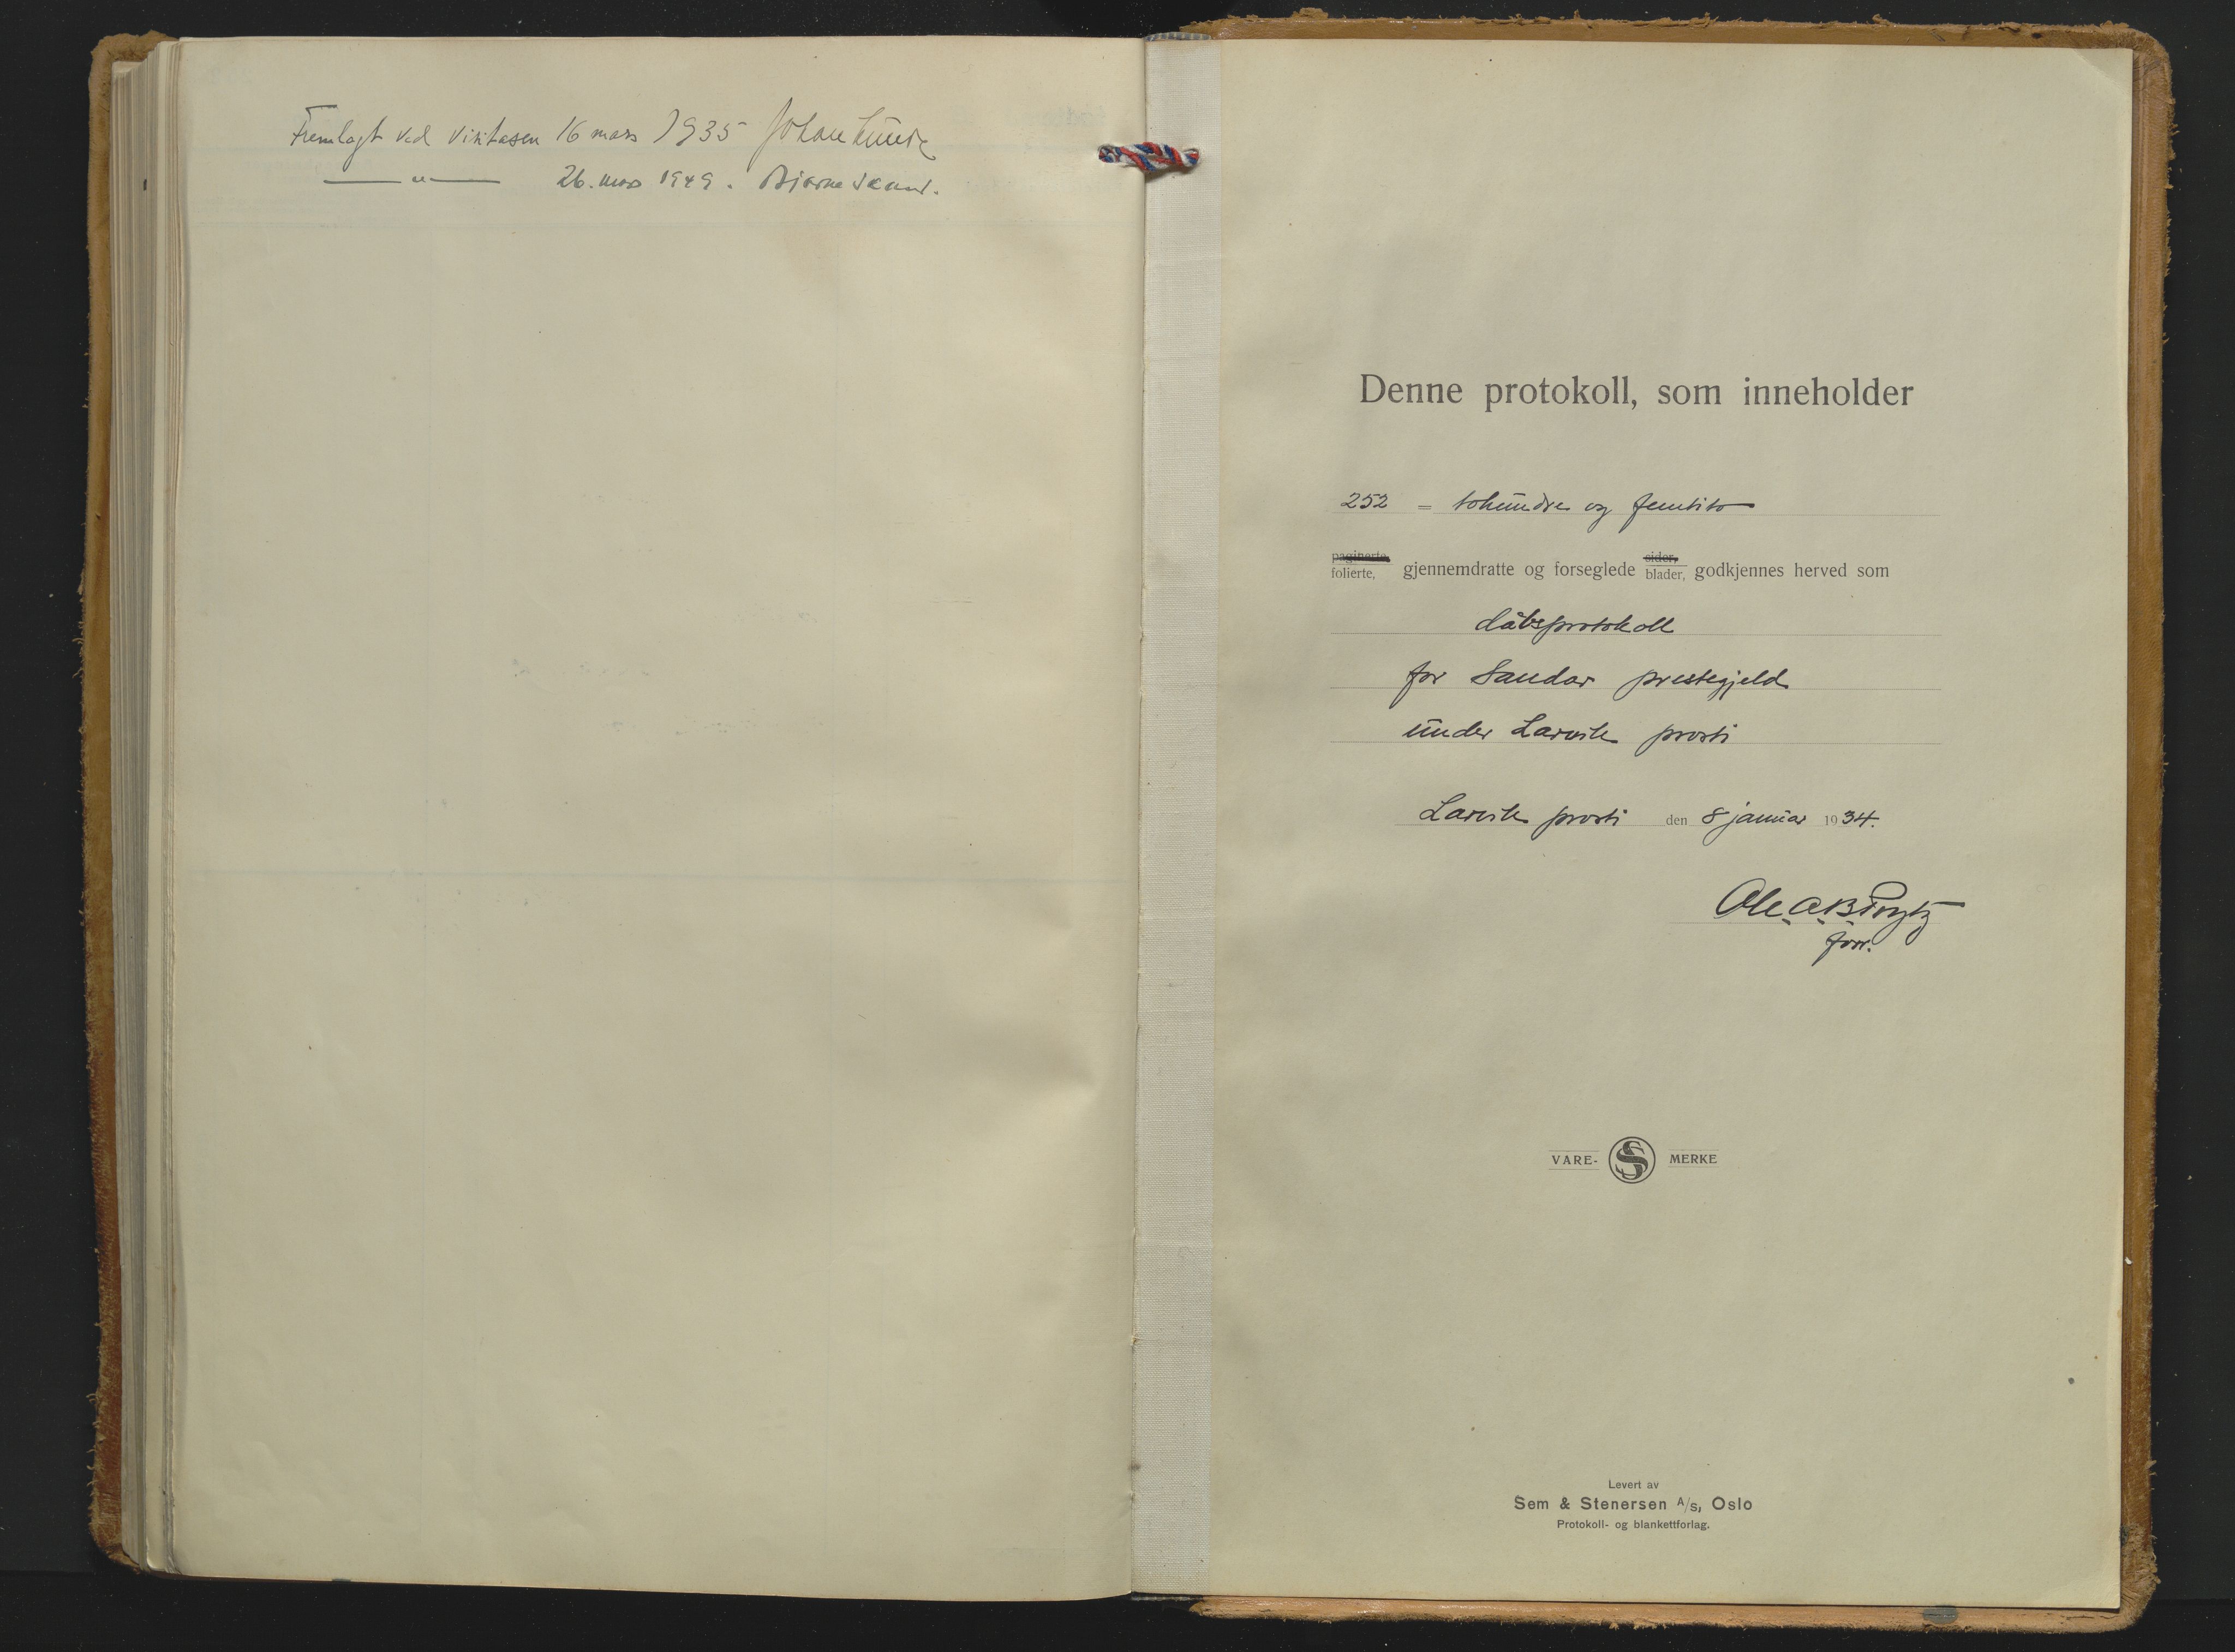 Fremlagt ved visitasen 16 mars 1935 Johan Lunde
—— " —— 26. mars 1949. Bjarne Skard.
Denne protokoll, som inneholder
252 = tohundre og femtito
paginerte, sider,
folierte, gjennemdratte og forseglede blader, godkjennes herved som
dåbsprotokoll
for Sandar prestegjeld
under Larvik prosti
Larvik prosti den 8 januar 1934.
Ole A. B.
VARE- S MERKE
Levert av
Sem & Stenersen A/s, Oslo
Protokoll- og blankettforlag.